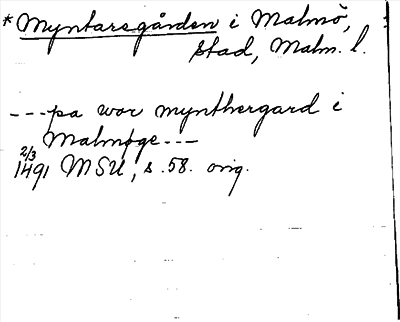 * Myntaregården i Malmö,
stad, Malm. l.
---pa wor mynthergard i
Malmøge---
2/3
1491 MSU, s. 58. orig.